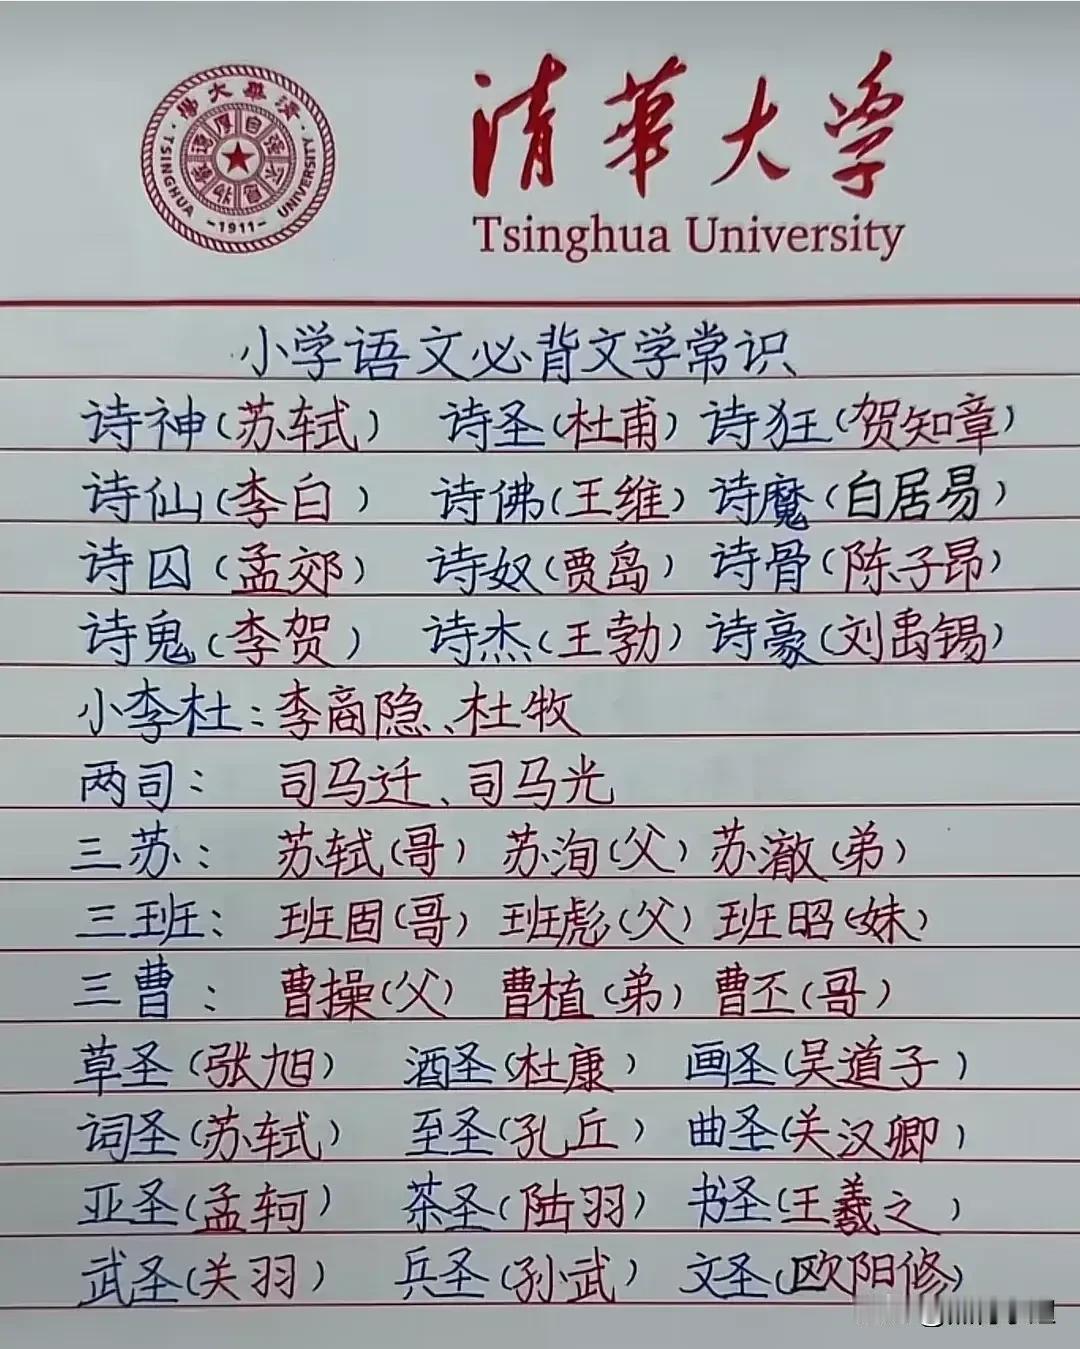 清華大学
Tsinghua University
學大華清
TSINGHUA UNIVERSITY
-1911-
小学语文必背文学常识
诗神(苏轼) 诗圣(杜甫) 诗狂(贺知章)
诗仙(李白) 诗佛(王维) 诗魔(白居易)
诗囚(孟郊) 诗奴(贾岛) 诗骨(陈子昂)
诗鬼(李贺) 诗杰(王勃) 诗豪(刘禹锡)
小李杜:李商隐、杜牧
两司: 司马迁、司马光
三苏: 苏轼(哥) 苏洵(父) 苏澈(弟)
三班: 班固(哥) 班彪(父) 班昭(妹)
三曹: 曹操(父) 曹植(弟) 曹丕(哥)
草圣(张旭) 酒圣(杜康) 画圣(吴道子)
词圣(苏轼) 至圣(孔丘) 曲圣(关汉卿)
亚圣(孟轲) 茶圣(陆羽) 书圣(王羲之)
武圣(关羽) 兵圣(孙武) 文圣(欧阳修)